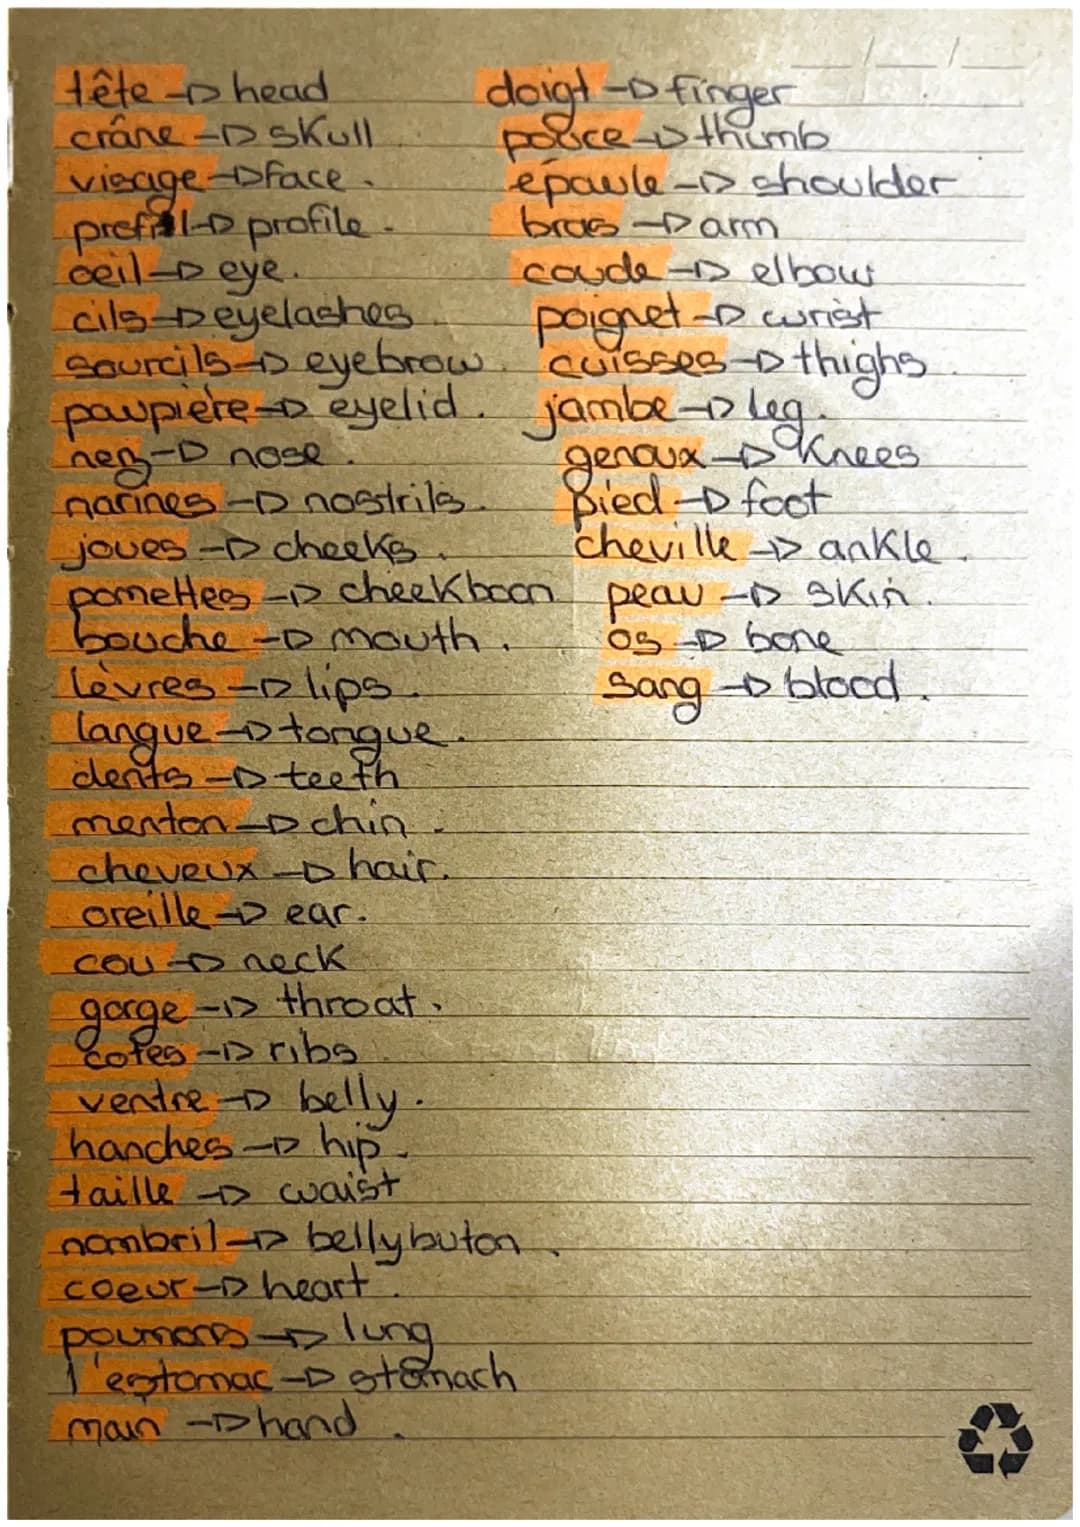 tête → head
crâne → skull
visage → face.
profil → profile.
oeil → eye.
cils → eyelashes
sourcils → eyebrow.
paupière → eyelid.
nez → nose.
narines → nostrils.
joues → cheeks.
pomettes → cheekboon
bouche → mouth.
lèvres → lips.
langue → tongue.
dents → teeth
menton → chin.
cheveux → hair.
oreille → ear.
cou → neck
gorge → throat.
cotes → ribs
ventre → belly.
hanches → hip.
taille → waist
nombril → bellybuton.
coeur → heart.
poumons → lung
l'estomac → stomach
main → hand.
doigt → finger
pouce → thumb
épaule → shoulder
bras → arm
coude → elbow
poignet → wrist
cuisses → thighs.
jambe → leg.
genoux → knees
pied → foot
cheville → ankle.
peau → skin.
os → bone
sang → blood.